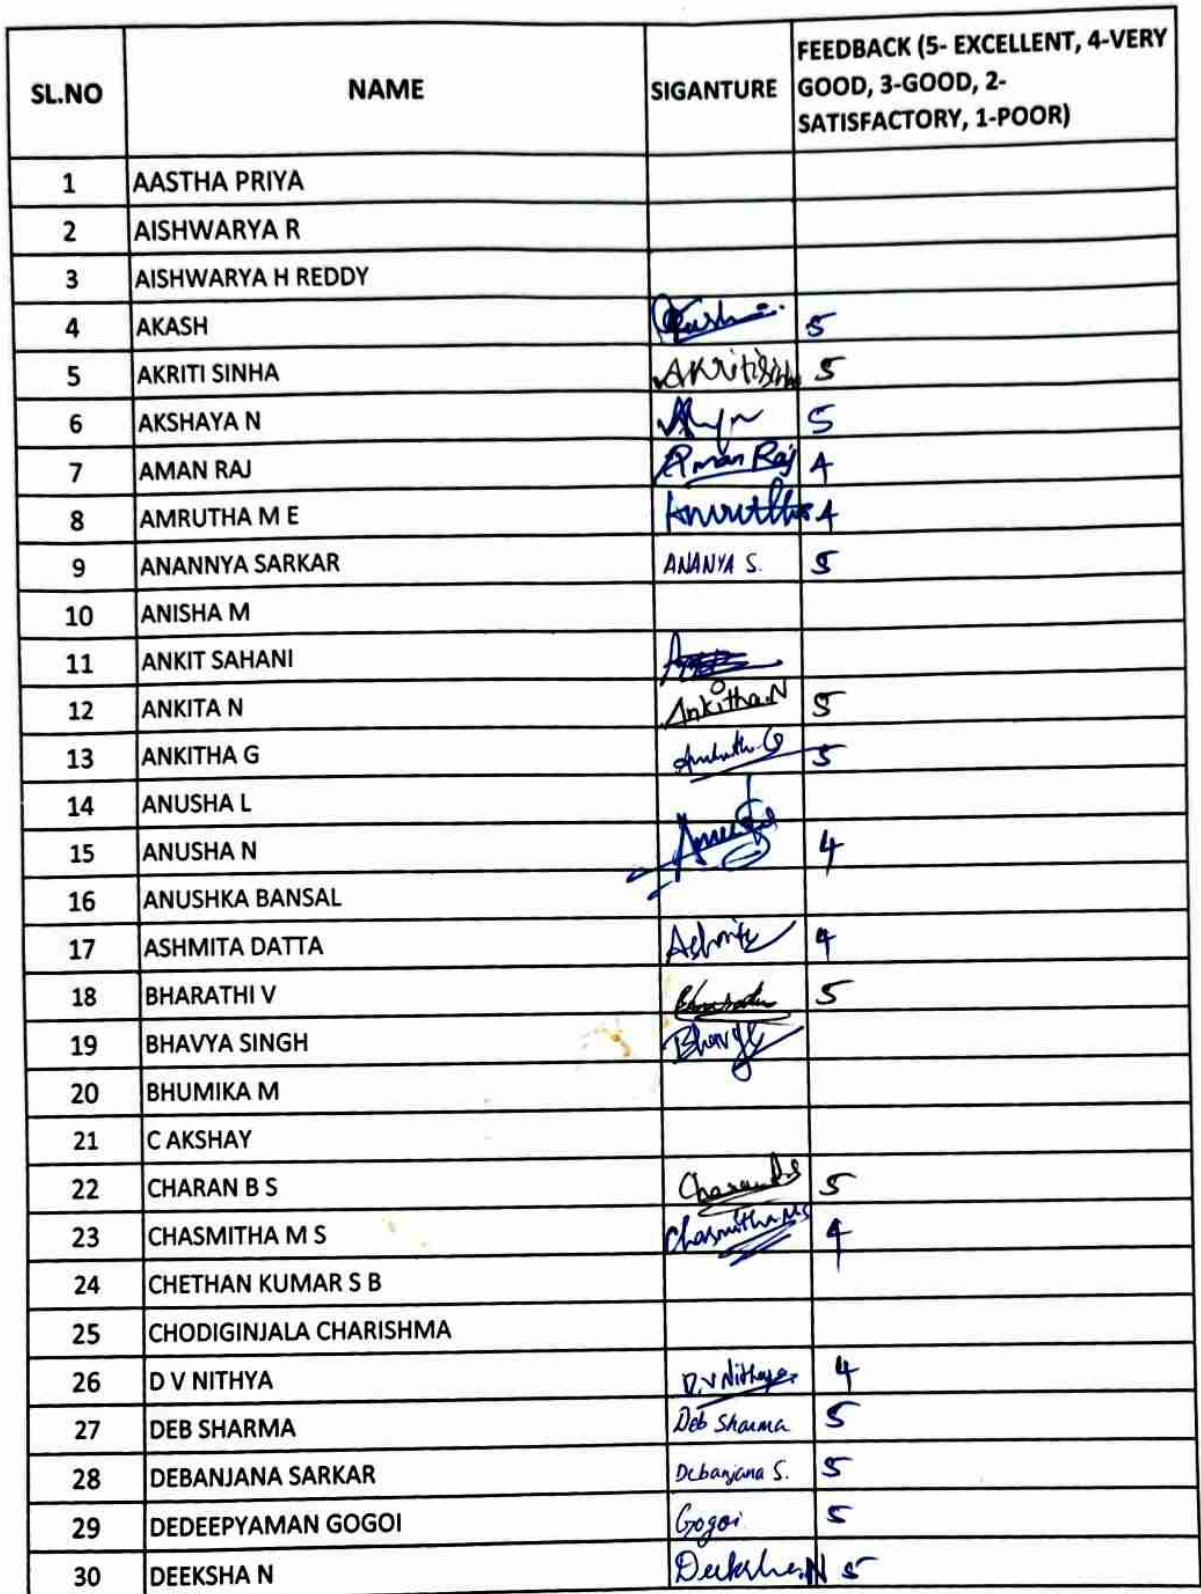 SL.NO NAME SIGANTURE FEEDBACK (5- EXCELLENT, 4-VERY GOOD, 3-GOOD, 2- SATISFACTORY, 1-POOR)
1 AASTHA PRIYA
2 AISHWARYA R
3 AISHWARYA H REDDY
4 AKASH 5
5 AKRITI SINHA 5
6 AKSHAYA N 5
7 AMAN RAJ Aman Raj 4
8 AMRUTHA M E 4
9 ANANNYA SARKAR ANANYA S. 5
10 ANISHA M
11 ANKIT SAHANI
12 ANKITA N Ankitha.N 5
13 ANKITHA G 5
14 ANUSHA L
15 ANUSHA N 4
16 ANUSHKA BANSAL
17 ASHMITA DATTA 4
18 BHARATHI V 5
19 BHAVYA SINGH
20 BHUMIKA M
21 C AKSHAY
22 CHARAN B S 5
23 CHASMITHA M S Chasmitha.M.S 4
24 CHETHAN KUMAR S B
25 CHODIGINJALA CHARISHMA
26 D V NITHYA D.V Nithya. 4
27 DEB SHARMA Deb Sharma 5
28 DEBANJANA SARKAR Debanjana S. 5
29 DEDEEPYAMAN GOGOI Gogoi 5
30 DEEKSHA N Deeksha.N 5